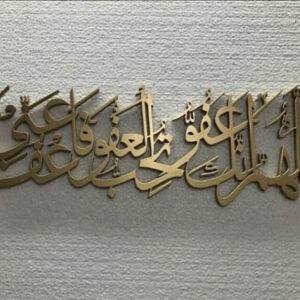 اللهم إنك عفوٌّ تُحِبُّ العفو فاعفُ عنّي